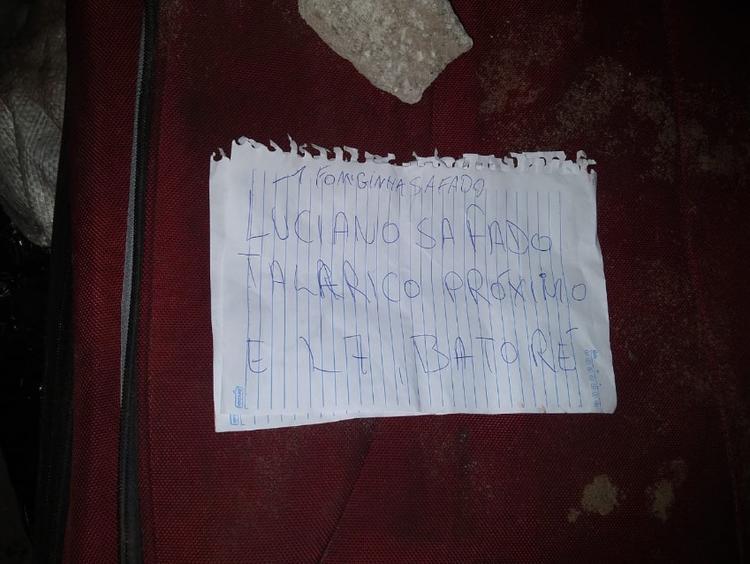 FOMGINHA SAFADO
LUCIANO SAFADO
TALARICO PRÓXIMO
E L7 BATORÉ